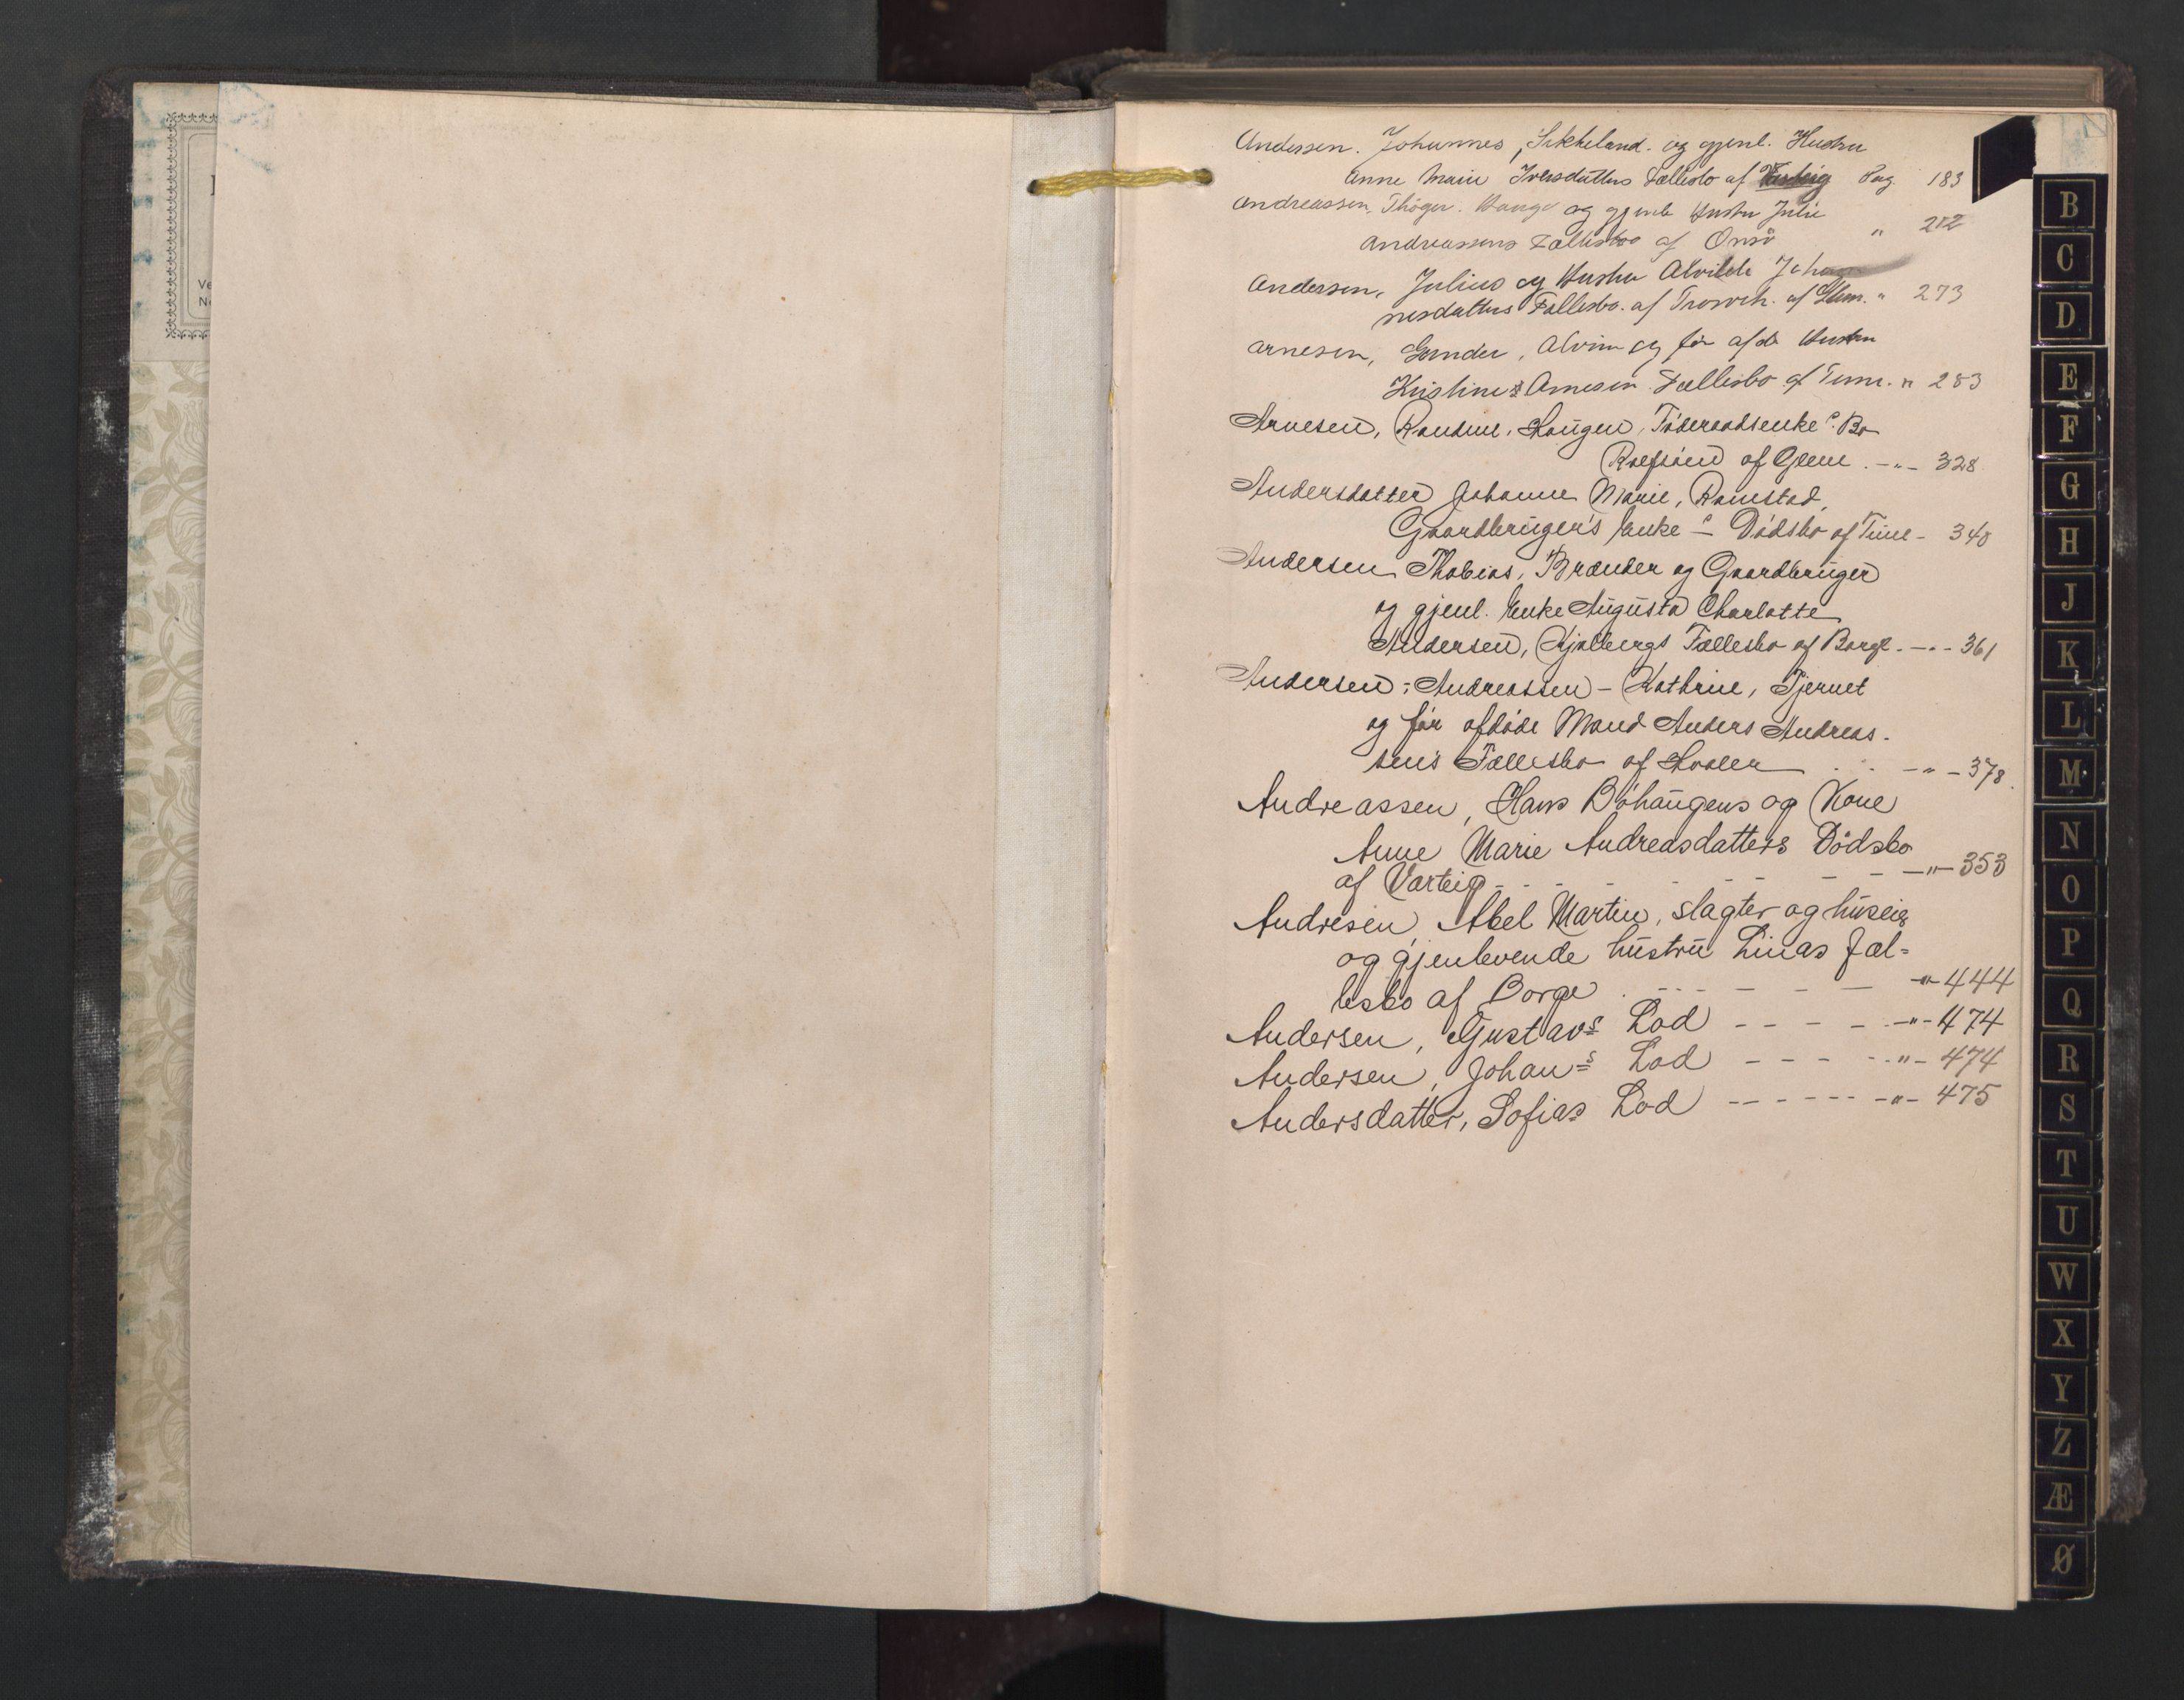 Andersen. Johannes, Sikkeland. og gjenl. Hustru
Anne Marie Iversdatters Fællesbo af Varteig Pag. 183
Andreassen, Thöger. Hauge og gjenle Hustru Julie
Andreassens Fællesboo af Onsö " 212
Andersen, Julius og Hustru Alvilde Johan
nesdatters Fællesbo. af Trosvik. af Glem. " 273
Arnesen, Gunder, Alvim og før afde Hustru
Kristines Arnesen Fællesbo af Tune. " 283
Arnesen, Randine, Haugen, Föderaadsenkes Bo
Rolfsöen af Glem. -"- 328
Andersdatter Johanne Marie, Ramstad,
Gaardbruger's Enkes Dödsbo af Tune - 340
Andersen Thobias, Brænder og Gaardbruger
og gjenl. Enke Augusta Charlotte
Andersen, Kjølbergs Fællesbo af Borge. -"- 361
Andersen ; Andreassen - Kathrine, Tjernet
og før afdøde Mand Anders Andreas.
sens Fællesbo af Hvaler . . -"- 378.
Andreassen, Hans Böhaugens og Kone
Anne Marie Andreasdatters Dödsbo
af Varteig - - - - - - - -"- 353
Andresen, Abel Martin, slagter og huseier
og gjenlevende hustru Linas Fæl=
lesbo af Borge . - - - - - - -"- 444
Andersen, Gustavs Lod - - - - -"- 474
Andersen, Johans Lod - - - - -"- 474
Andersdatter, Sofias Lod - - - - - - -"- 475
B
C
D
E
F
G
H
J
K
L
M
N
O
P
Q
R
S
T
U
W
X
Y
Z
Æ
Ø